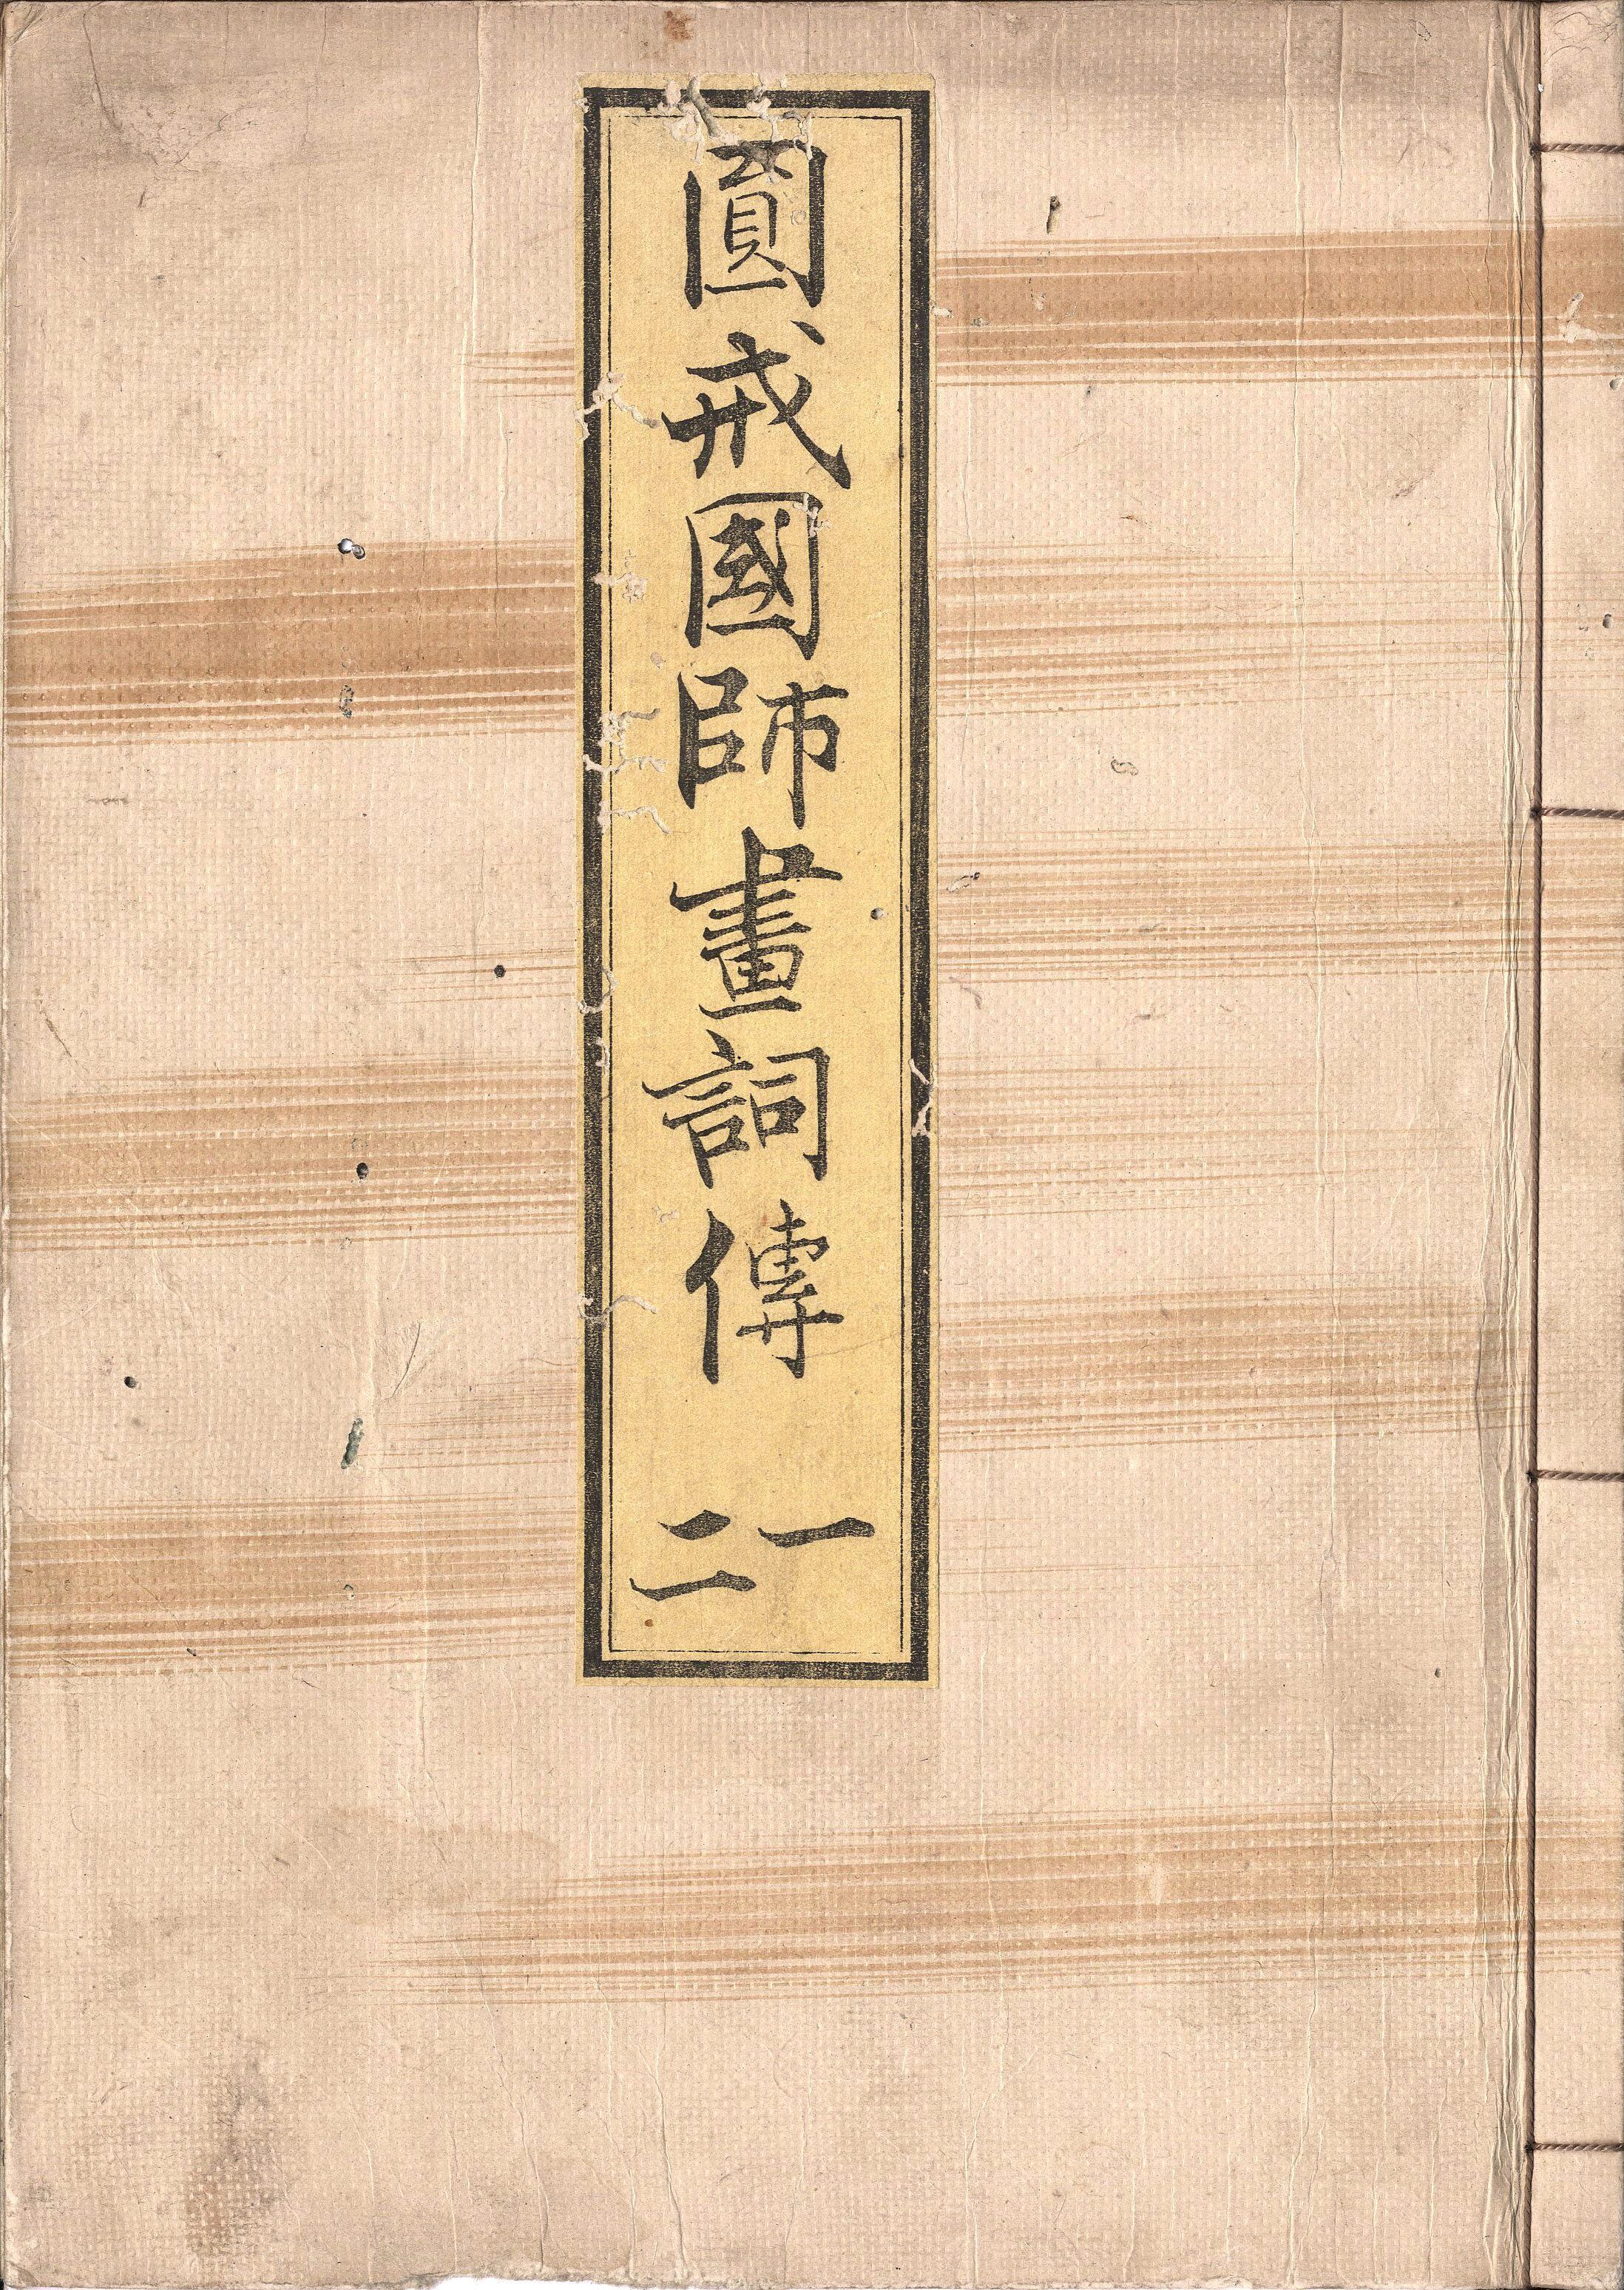 圓戒國師畫詞傳
一
二